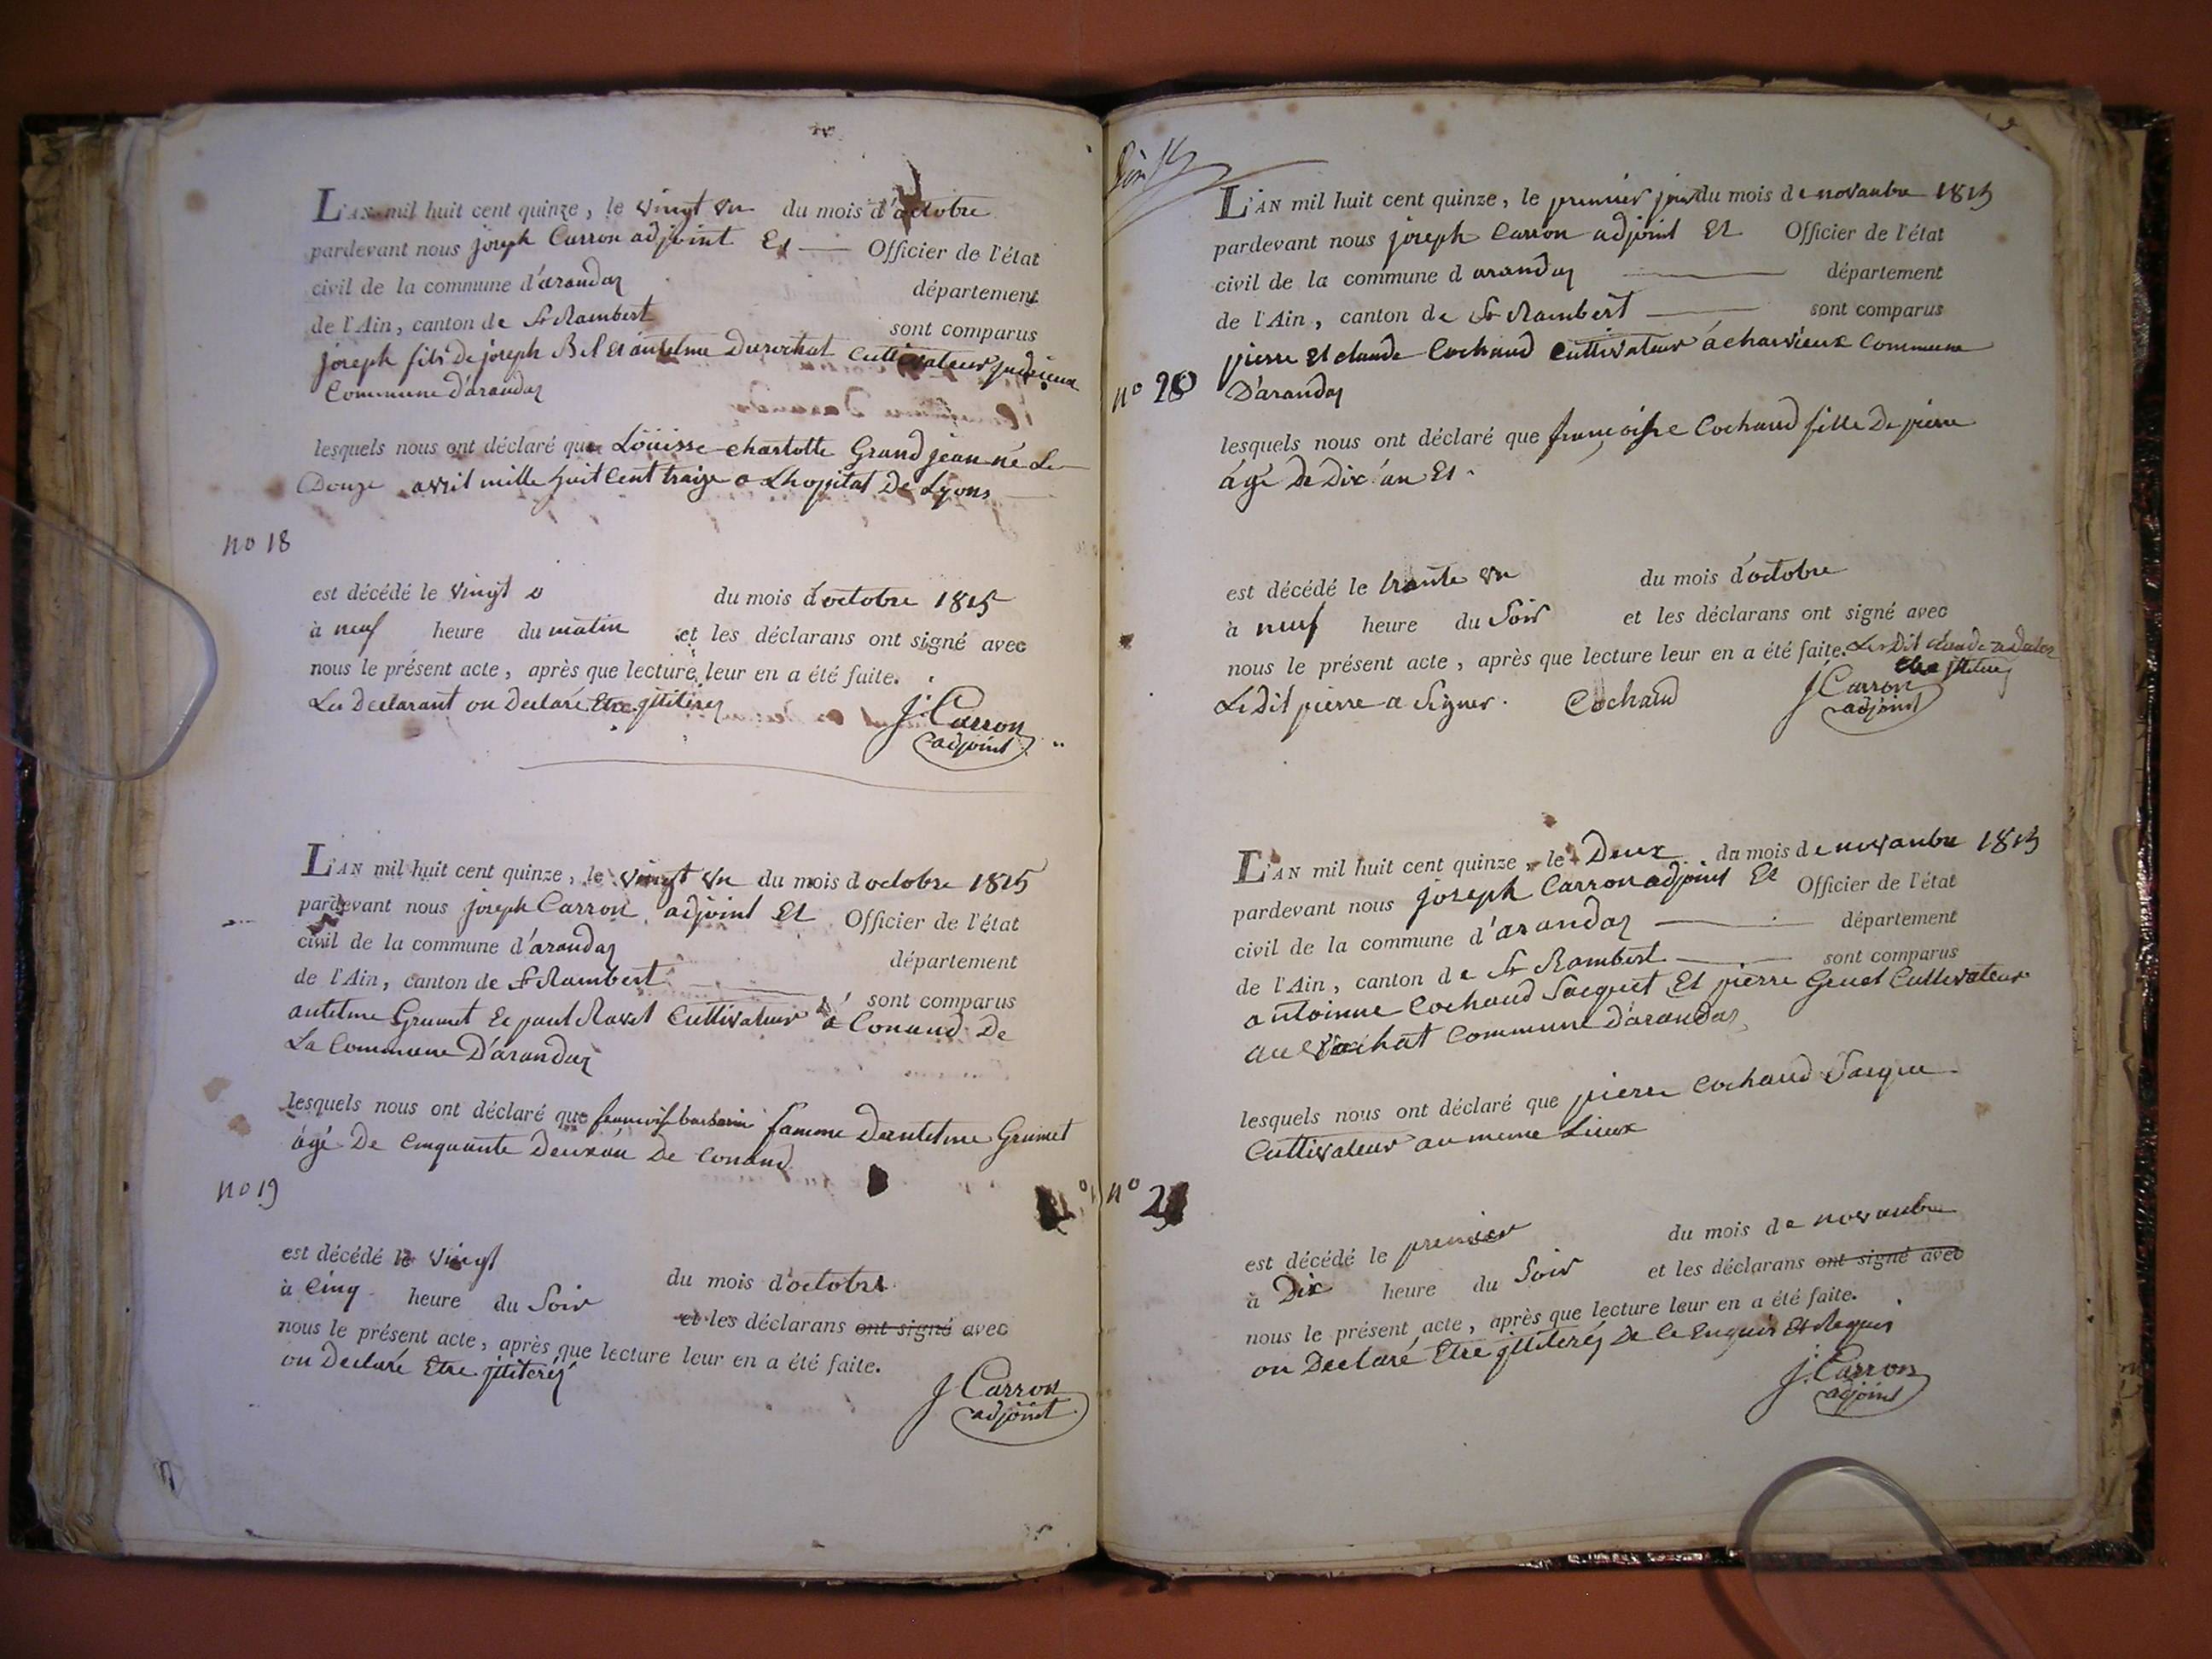 L'AN mil huit cent quinze, le vingt un du mois d'octobre
pardevant nous joseph Carron adjoint Et Officier de l'état
civil de la commune d'arandas département
de l'Ain, canton de St Rambert sont comparus
joseph fils De joseph Bel Et antelme Durochat Cultivateur
Commune D'arandas
lesquels nous ont déclaré que Loüisse charlotte Grand jean né Le
Douze avril mille huit Cent traize a Lhopital De Lyons
no 18
est décédé le vingt du mois d'octobre 1815
à neuf heure du matin et les déclarans ont signé avec
nous le présent acte, après que lecture leur en a été faite.
Les Declarant on Declaré Etre jlliterés
J. Carron
adjoint
L'AN mil huit cent quinze, le vingt un du mois d octobre 1815
pardevant nous joseph Carron adjoint Et Officier de l'état
civil de la commune d'arandas département
de l'Ain, canton de St Rambert sont comparus
antelme Grumet Et paul Ravet Cultivateur à Conand De
La Commune D'arandas
lesquels nous ont déclaré que famme Dantelme Grumet
âgé De Cinquante Deux an De Conand
no 19
est décédé le vingt du mois d'octobre
à Cinq heure du Soir et les déclarans ont signé avec
nous le présent acte, après que lecture leur en a été faite.
on Declaré Etre jlliterés
J Carron
adjoint
L'AN mil huit cent quinze, le premier jour du mois de novanbre 1815
pardevant nous joseph Carron adjoint Et Officier de l'état
civil de la commune d arandas département
de l'Ain, canton de St Rambert sont comparus
pierre Et claude Cochaud Cultivateur à charvieux Commune
no 20 D'arandas
lesquels nous ont déclaré que françoise Cochaud fille De pierre
âgé De Dix an Et
est décédé le trante un du mois d'octobre
à neuf heure du Soir et les déclarans ont signé avec
nous le présent acte, après que lecture leur en a été faite. Le Dit claude
Le Dit pierre a Signer. Cochaud
J. Carron
adjoint
L'AN mil huit cent quinze, le Deux du mois de novanbre 1815
pardevant nous joseph Carron adjoint Et Officier de l'état
civil de la commune d'arandas département
de l'Ain, canton de St Rambert sont comparus
antoinne Cochaud Sacquet Et pierre Gruet Cultivateur
au Commune D'arandas
lesquels nous ont déclaré que pierre Cochaud Sacque
Cultivateur au meme Lieux
no 21
est décédé le premier du mois de novanbre
à Dix heure du Soir et les déclarans ont signé avec
nous le présent acte, après que lecture leur en a été faite.
on Declaré Etre jlliterés De Ce Enquis Et Requis
J. Carron
adjoint